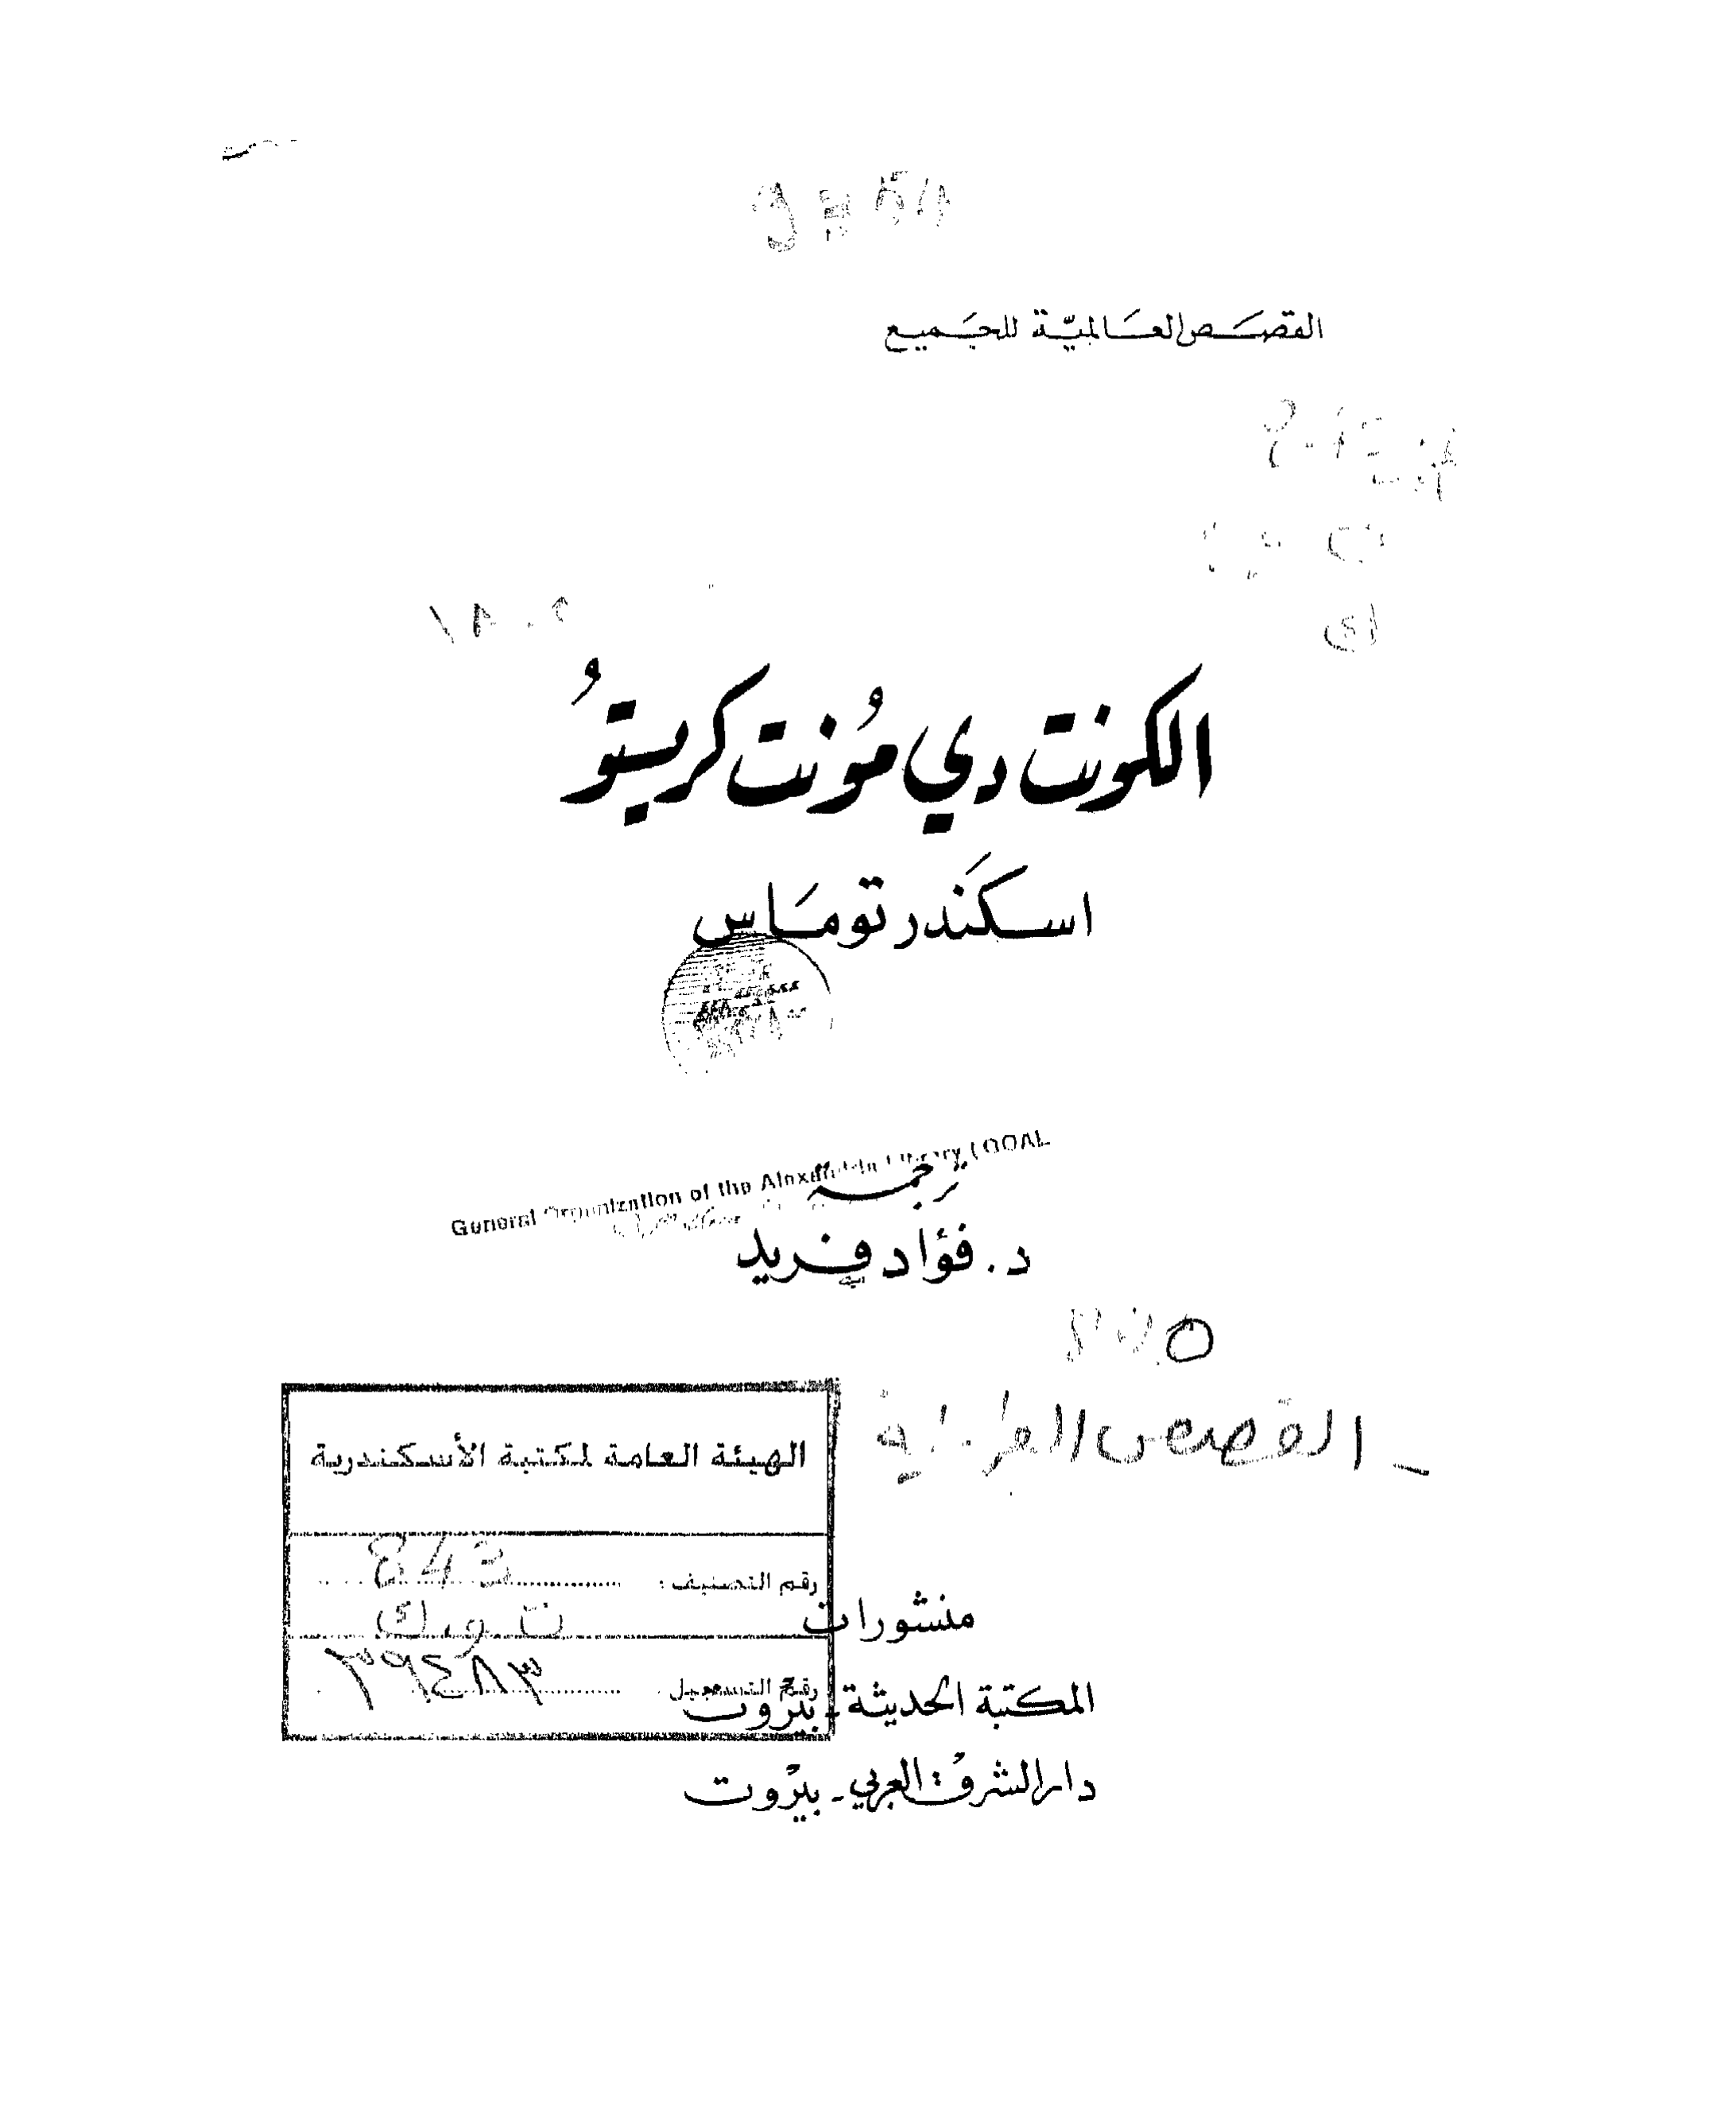 القصص العالمية للجميع
الكونت دي مُونت كريستوُ
اسكَندر تومَاس
General Organization of the Alexandria Library (GOAL
ترجمة
د. فؤاد فريد
ـ القصص
الهيئة العامة لمكتبة الأسكندرية
رقم التصنيف: 843
ت و ك
رقم التسجيل: ٣٩٤٨٣
منشورات
المكتبة الحديثة ـ بيرُوت
دار الشرق العربي ـ بيرُوت